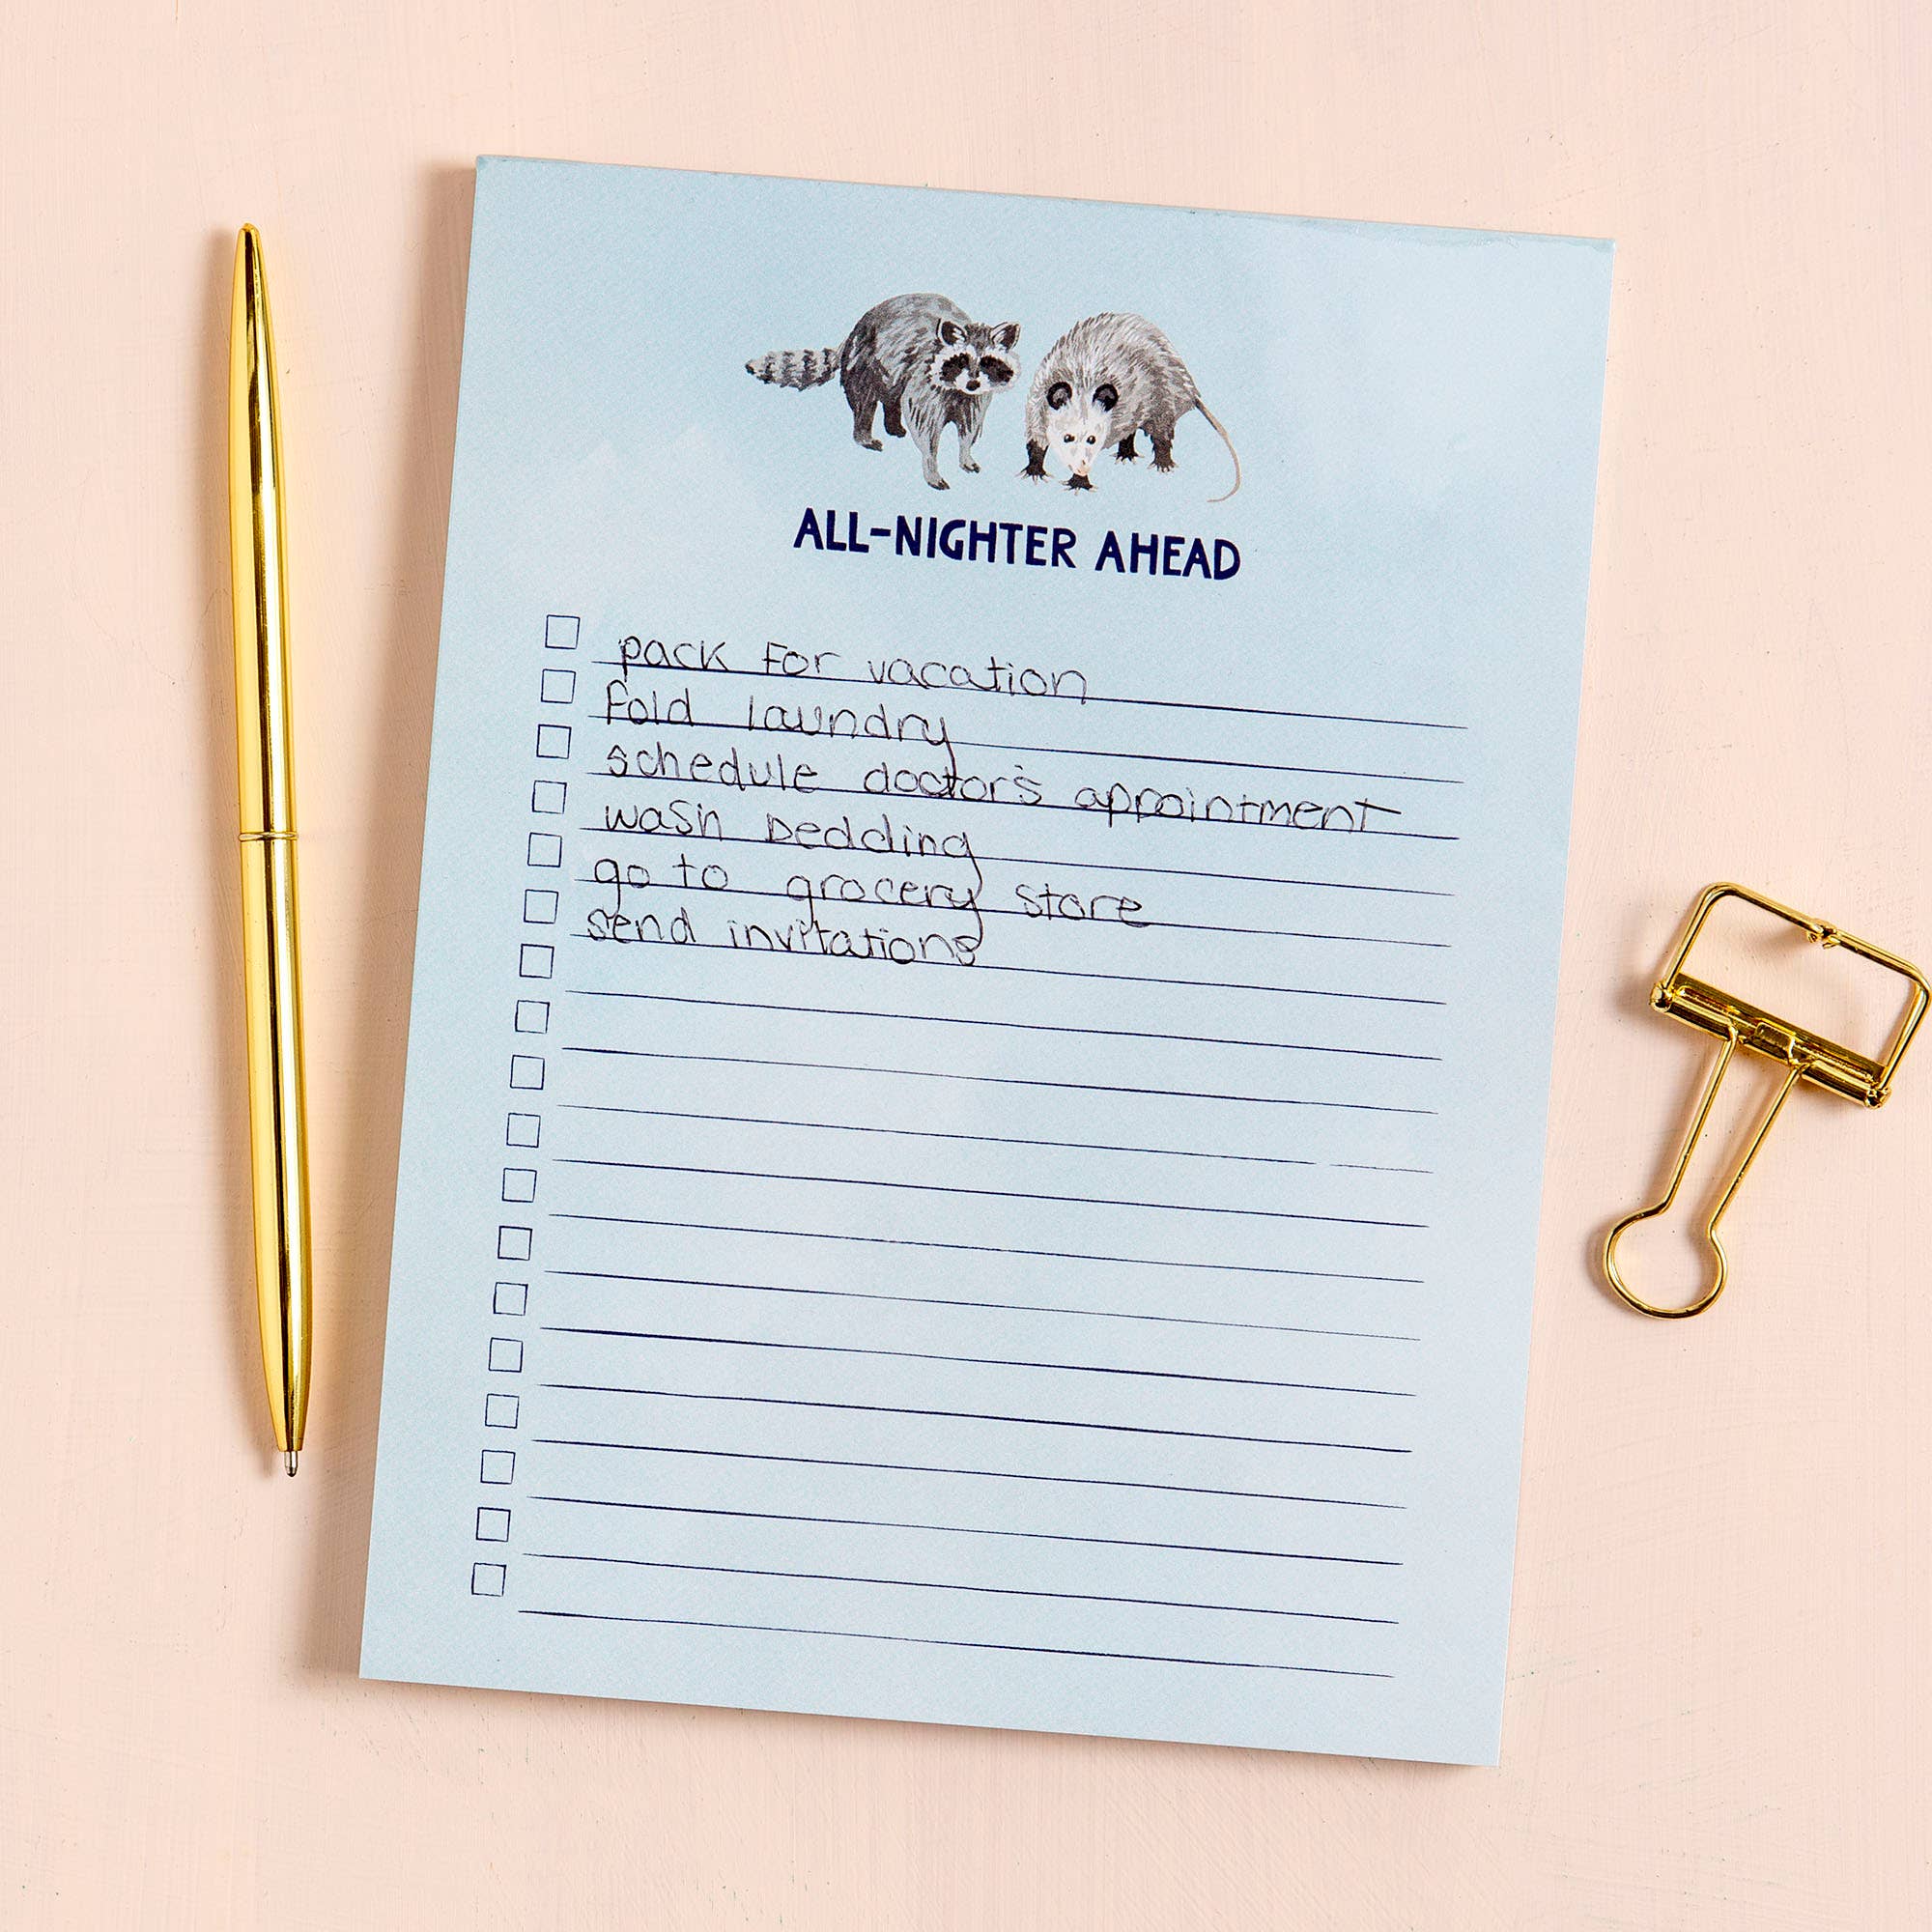 ALL-NIGHTER AHEAD
pack for vacation
fold laundry
schedule doctor's appointment
wash bedding
go to grocery store
send invitations